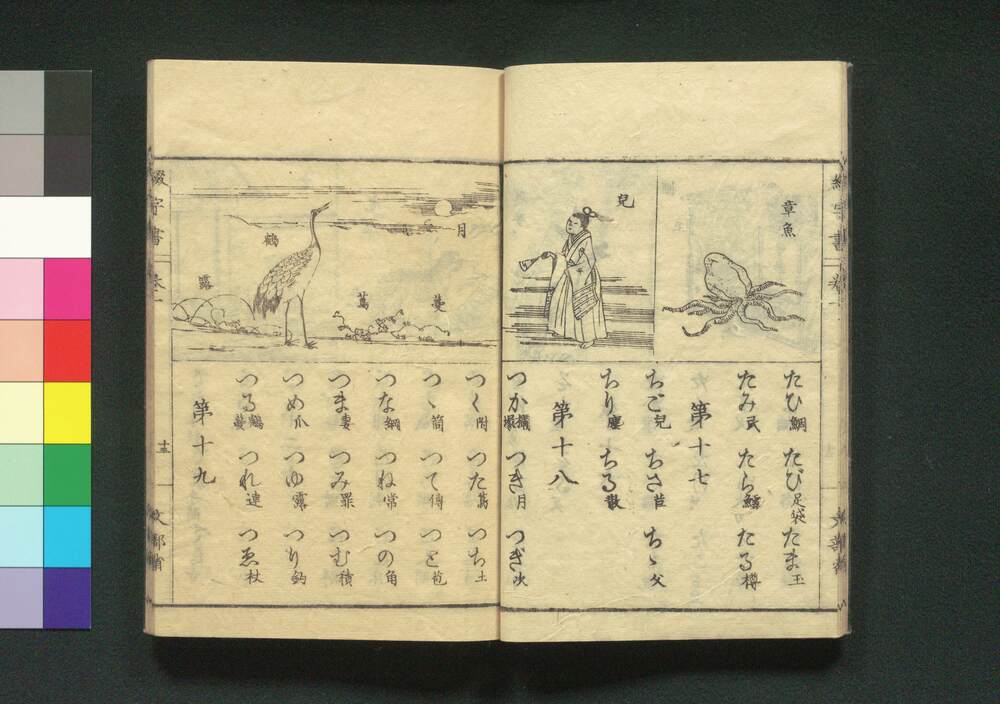 章魚
兒
たひ鯛 たび足袋 たま玉
たみ民 たら鱈 たる樽
第十七
ちご兒 ちさ苣 ちゝ父
ちり塵 ちる散
第十八
つか欛塚 つき月 つぎ次
月
鶴
蔓
蔦
露
つく附 つた蔦 つち土
つゝ筒 つて傳 つと苞
つな綱 つね常 つの角
つま妻 つみ罪 つむ積
つめ爪 つゆ露 つり釣
つる鶴蔓 つれ連 つゑ杖
第十九
綴字書 卷一
十五
文部省